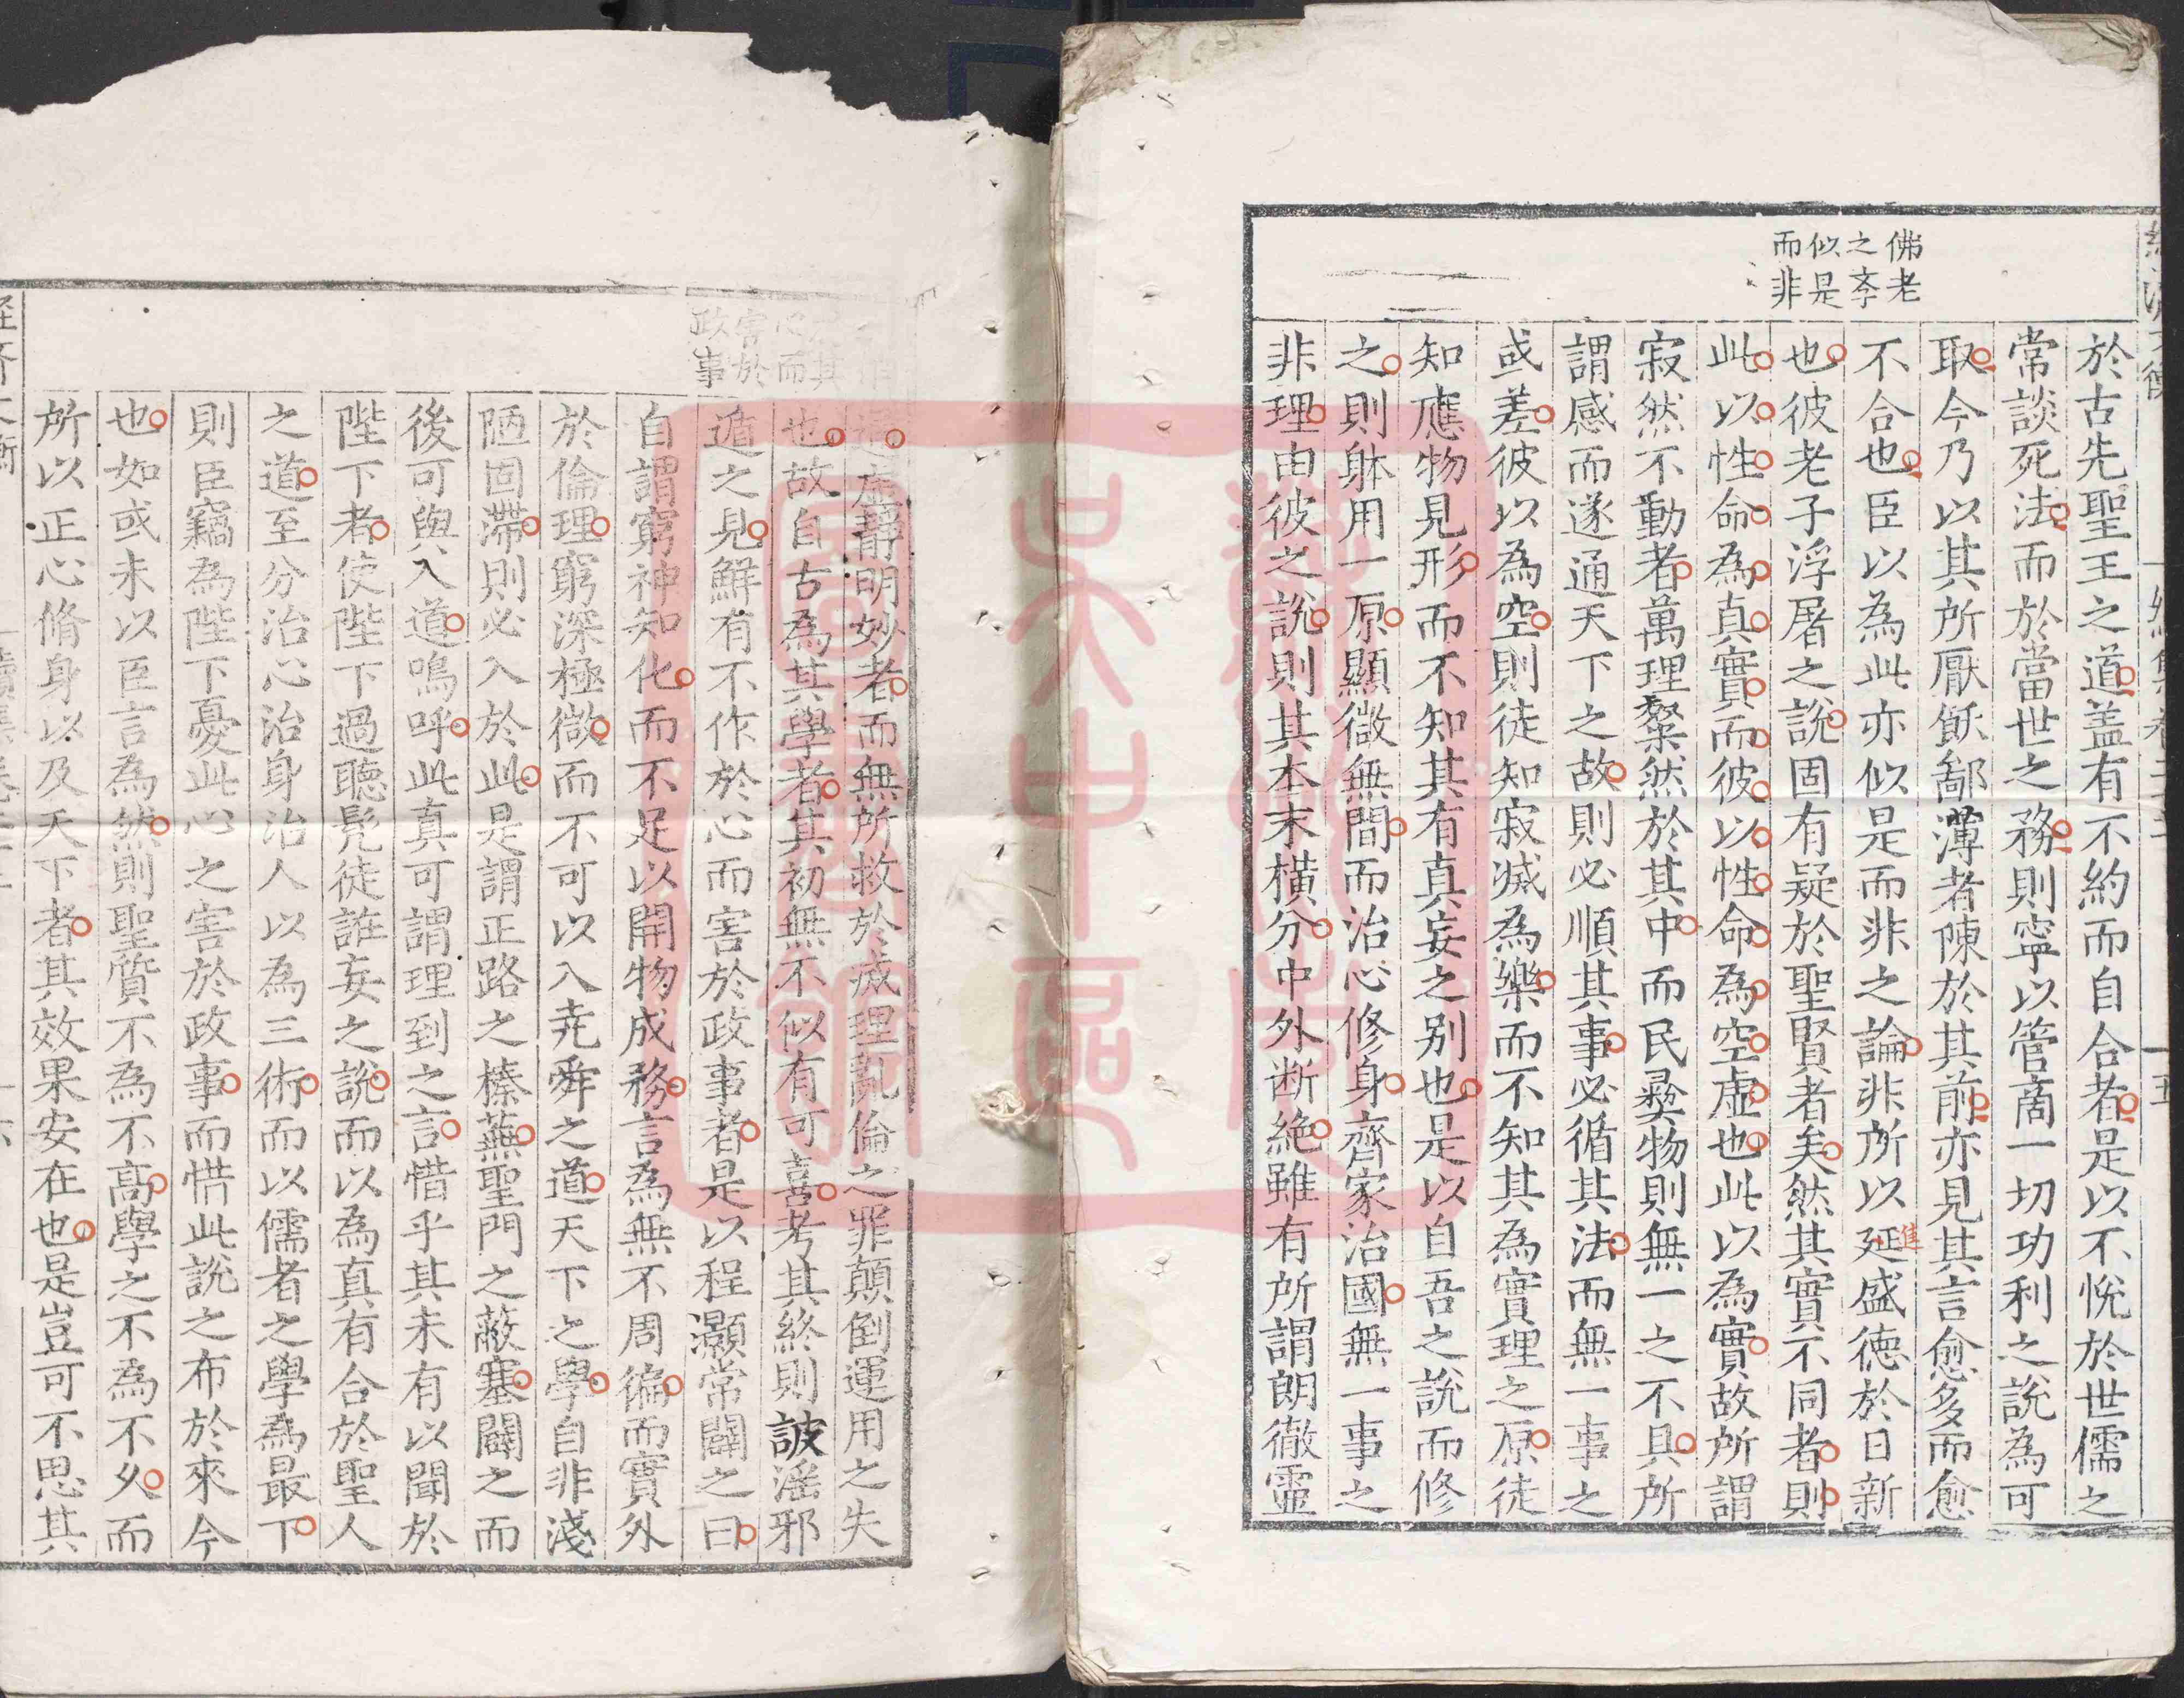 佛老
之斈
似是
而非
於古先聖王之道盖有不約而自合者是以不悅於世儒之
常談死法而於當世之務則寜以管商一切功利之説為可
取今乃以其所厭飫鄙薄者陳於其前亦見其言愈多而愈
不合也臣以為此亦似是而非之論非所以延盛德於日新
進
也彼老子浮屠之説固有疑於聖賢者矣然其實不同者則
此以性命為真實而彼以性命為空虚也此以為實故所謂
寂然不動者萬理粲然於其中而民彜物則無一之不具所
謂感而遂通天下之故則必順其事必循其法而無一事之
或差彼以為空則徒知寂滅為樂而不知其為實理之原徒
知應物見形而不知其有真妄之别也是以自吾之説而修
之則躰用一原顯微無間而治心修身齊家治國無一事之
非理由彼之説則其本末橫分中外断絶雖有所謂朗徹靈
心而
害於
政事
虚靜明妙者而無所救於滅理亂倫之罪顛倒運用之失
也故自古為其學者其初無不似有可喜考其終則詖滛邪
遁之見鮮有不作於心而害於政事者是以程灝常闢之曰
自謂窮神知化而不足以開物成務言為無不周徧而實外
於倫理窮深極微而不可以入尭舜之道天下之學自非淺
陋固滯則必入於此是謂正路之榛蕪聖門之蔽塞闢之而
後可與入道嗚呼此真可謂理到之言惜乎其未有以聞於
陛下者使陛下過聽髠徒誑妄之説而以為真有合於聖人
之道至分治心治身治人以為三術而以儒者之學為最下
則臣竊為陛下憂此心之害於政事而惜此説之布於來今
也如或未以臣言為然則聖質不為不髙學之不為不久而
所以正心脩身以及天下者其效果安在也是豈可不思其